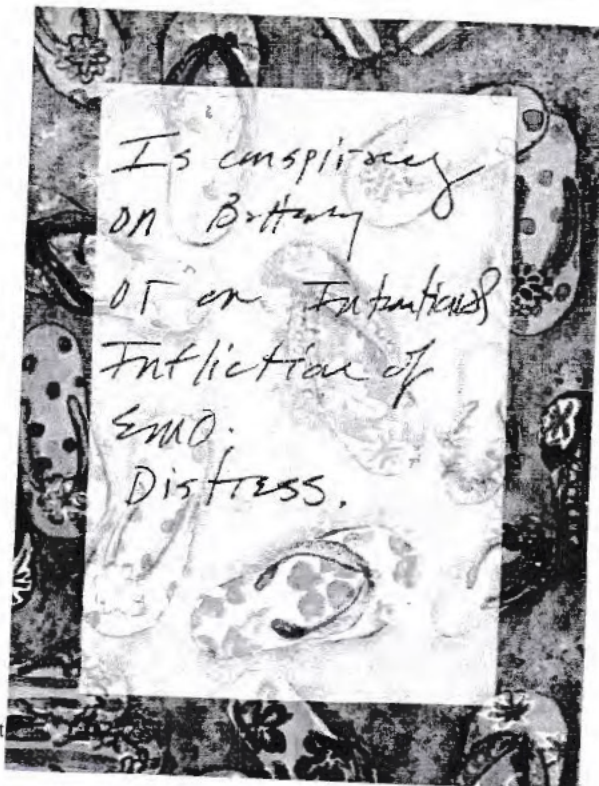 Is conspiracy
on Battery
or on Intentional
Infliction of
EMO.
Distress.
t